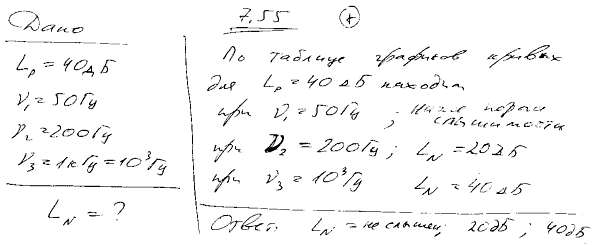 7.55 (+)
Дано
L_p = 40дБ
ν₁ = 50Гц
ν₂ = 200Гц
ν₃ = 1кГц = 10³Гц
L_N = ?
По таблице графиков кривых
для L_p = 40дБ находим
при ν₁ = 50Гц ; ниже порога слышимости
при ν₂ = 200Гц ; L_N = 20дБ
при ν₃ = 10³Гц L_N = 40дБ
Ответ: L_N = не слышен; 20дБ ; 40дБ